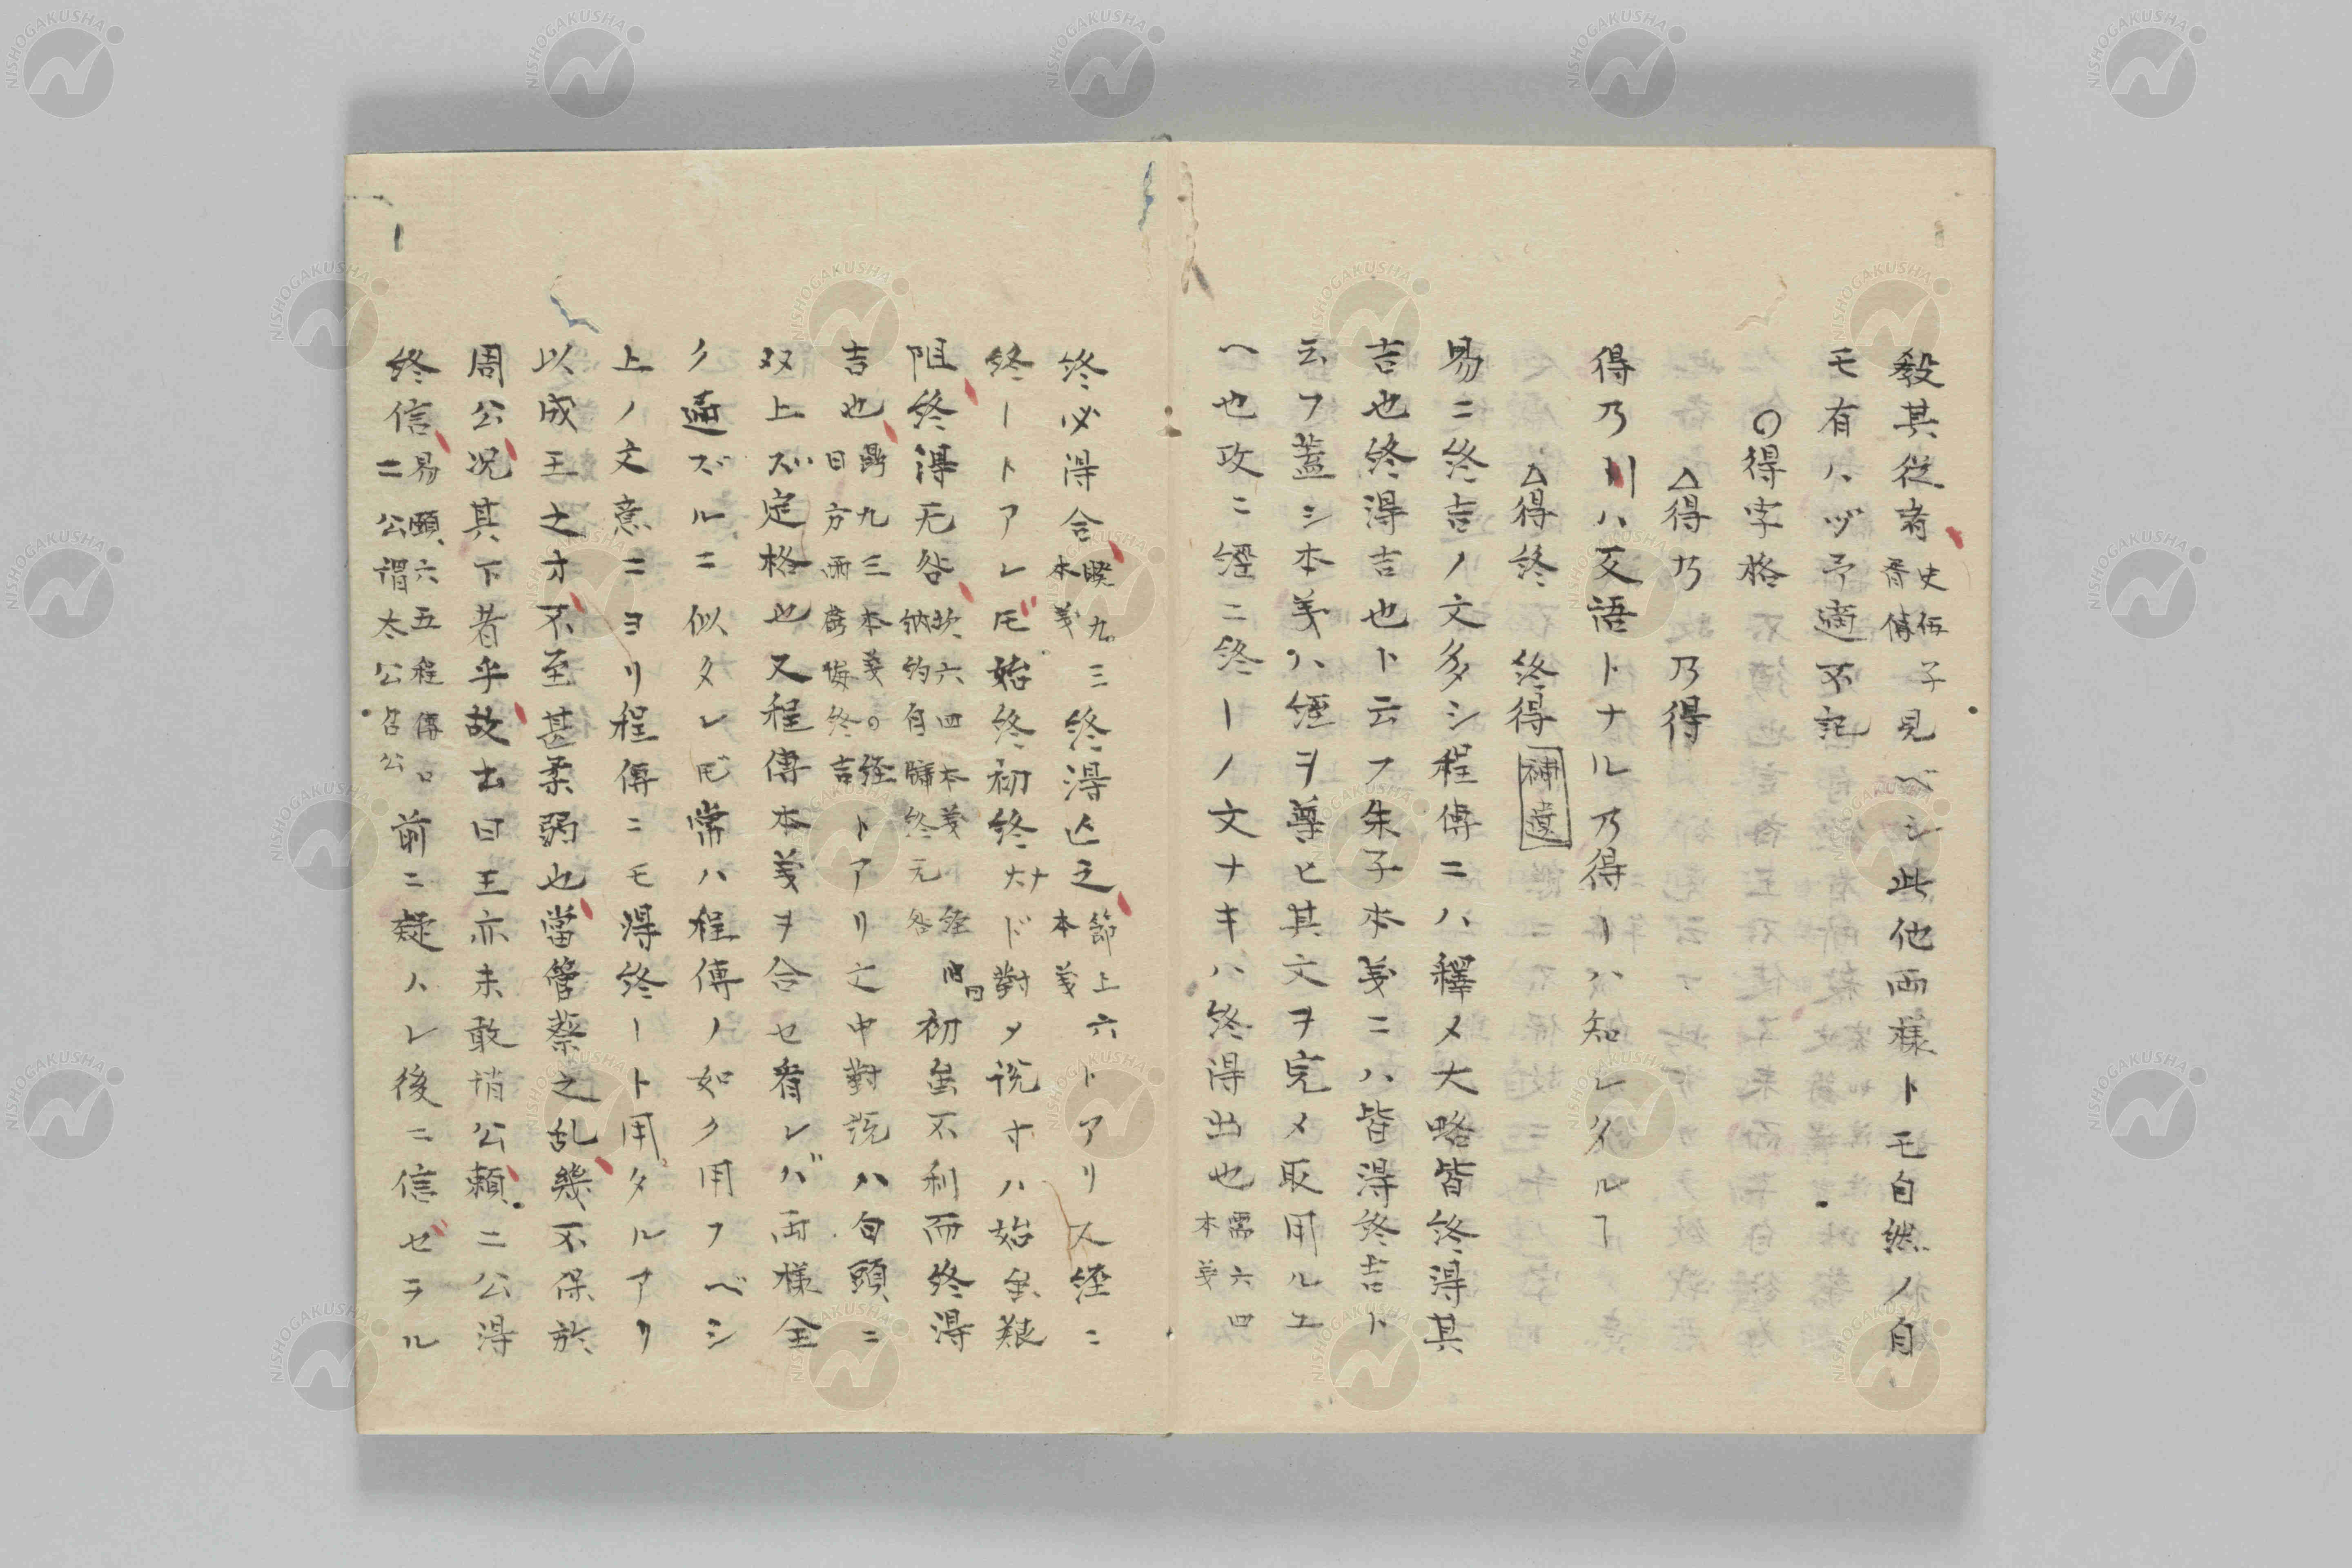 殺其従者史伍子胥傳見ベシ此他両様トモ自然ノ自
モ有ハヅ予適不記
〇得字格
△得乃 乃得
得乃則ハ反語トナル乃得ーハ知レタルヿ
△得終 終得 補遺
易ニ終吉ノ文多シ程傳ニハ釋メ大略皆終得其
吉也終得吉也ト云フ朱子本義ニハ皆得終吉ト
云フ蓋シ本義ハ經ヲ尊ヒ其文ヲ完メ取用ルユ
ヘ也攻ニ經ニ終ーノ文ナキハ終得出也需六四本義
終必得合睽九三本義終得亾之節上六本義トアリ又經ニ
終ートアレ𪜈始終初終ナドト對メ說寸ハ始虽艱
阻終得无咎坎六四本義納約自牖終无咎經内初虽不利而終得
吉也鼎九三本義〇經曰方雨虧悔終吉トアリ文中對說ハ句頭ニ
双上ズ定格也又程傳本義ヲ合セ看レバ両様全
ク適ズルニ似タレ𪜈常ハ程傳ノ如ク用フベシ
上ノ文意ニヨリ程傳ニモ得終ート用タルアリ
以成王之才不至甚柔弱也當管蔡之乱幾不保於
周公况其下者乎故書曰王亦未敢誚公賴二公得
終信易頤六五程傳〇二公謂太公召公前ニ疑ハレ後ニ信ゼラル
NISHOGAKUSHA